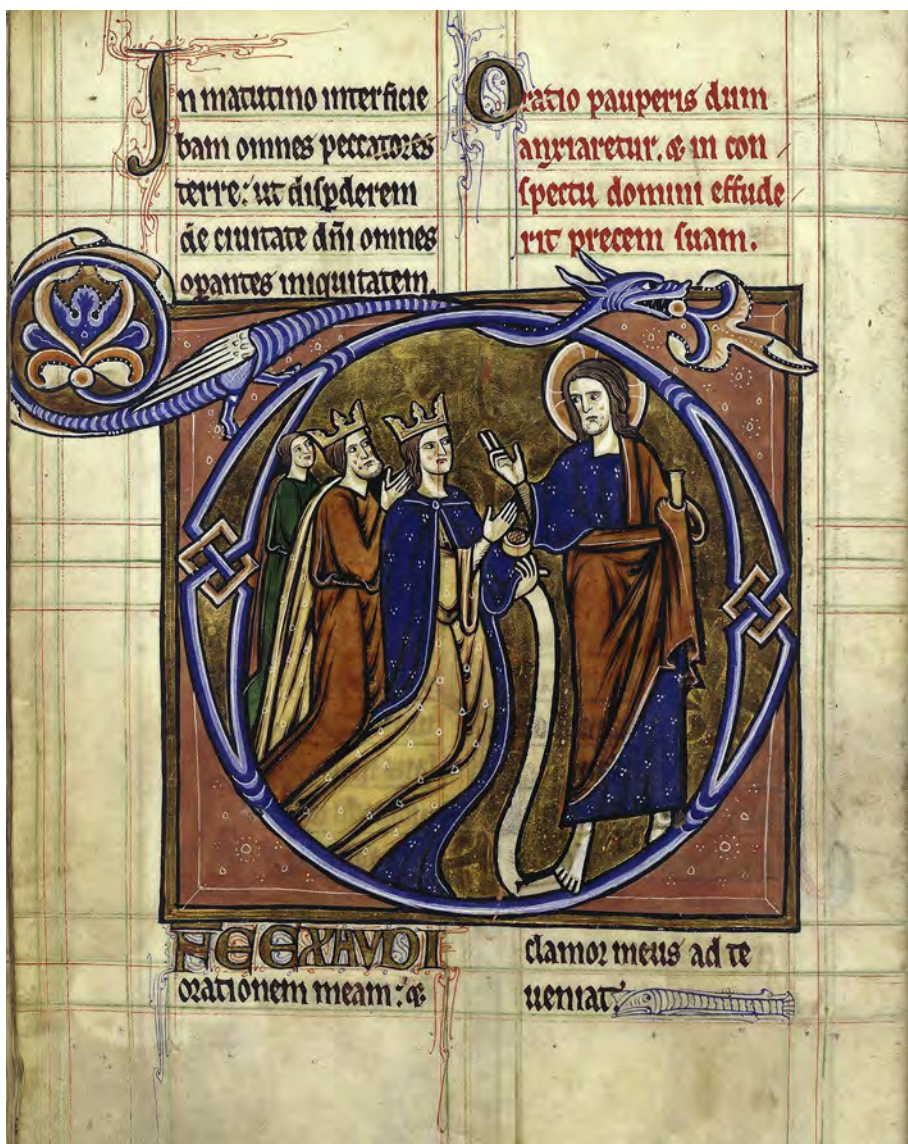 In matutino interficie
bam omnes peccatores
terre: ut disꝑderem
de ciuitate dñi omnes
operantes iniquitatem.
Oratio pauperis dum
anxiaretur. & in con
spectu domini effude
rit precem suam.
D
NE EXAUDI
orationem meam: &
clamor meus ad te
ueniat.